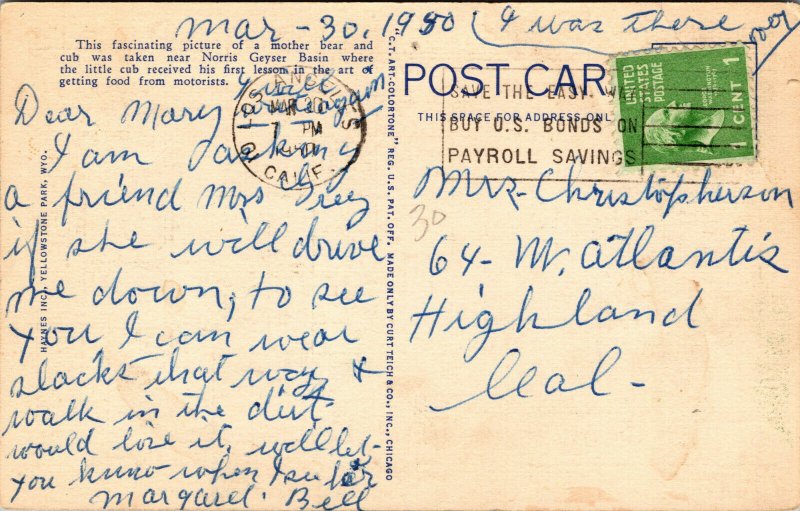 Mar-30. 1950 (I was there over
This fascinating picture of a mother bear and
cub was taken near Norris Geyser Basin where
the little cub received his first lesson in the art of
getting food from motorists.
Dear Mary
I am
a friend Mrs
if she will drive
me down, to see
you I can wear
slacks that way &
walk in the dirt
would love it, will let
you know when I see her
Margaret Bell
HAYNES INC., YELLOWSTONE PARK, WYO.
"C.T. ART-COLORTONE" REG. U.S. PAT. OFF. MADE ONLY BY CURT TEICH & CO., INC., CHICAGO
POST CAR
THIS SPACE FOR ADDRESS ONL
LOS ANGELES
MAR 30
PM
CALIF.
SAVE THE EASY W
BUY U.S. BONDS ON
PAYROLL SAVINGS
UNITED STATES POSTAGE
1 CENT
Mrs- Christopherson
30
64- W. Atlantis
Highland
Cal-